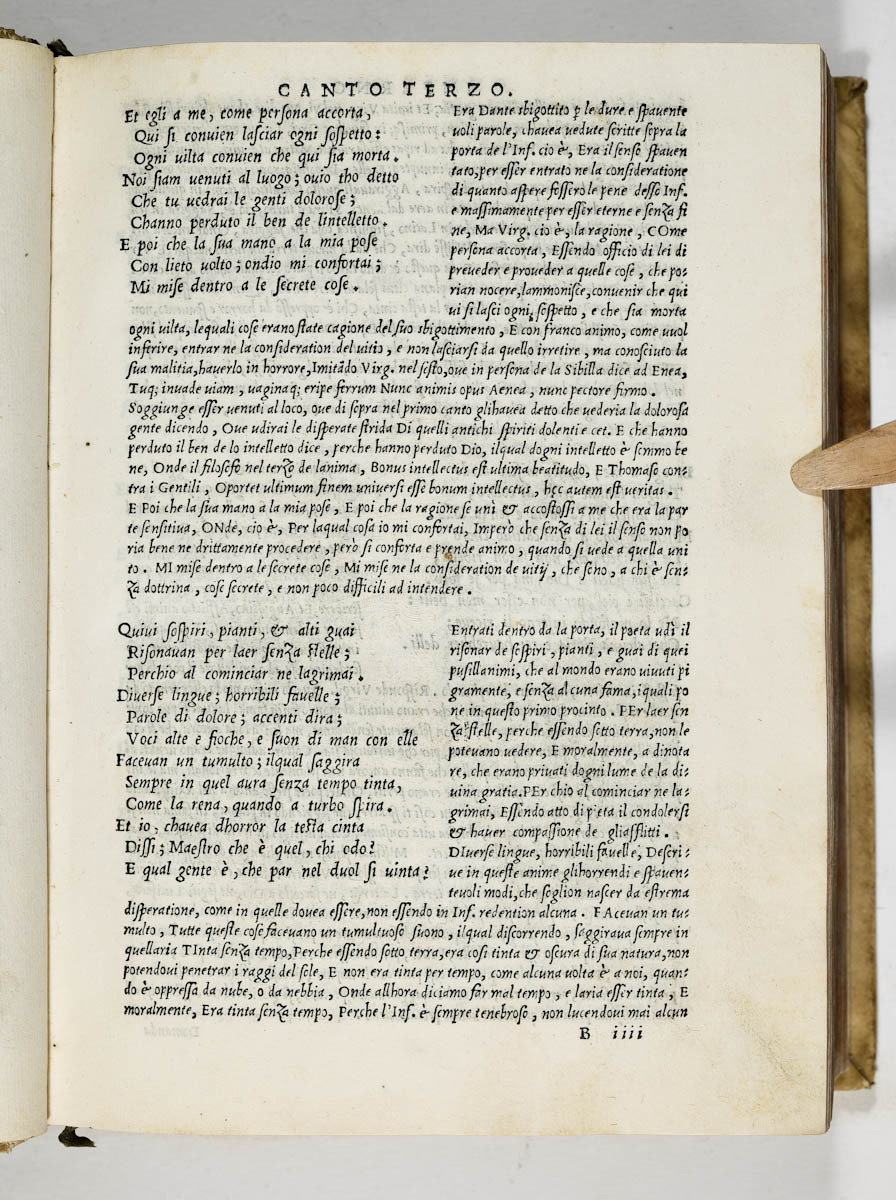 CANTO TERZO.
Et egli a me, come persona accorta,
Qui si conuien lasciar ogni sospetto:
Ogni uilta conuien che qui sia morta.
Noi siam uenuti al luogo; ouio tho detto
Che tu uedrai le genti dolorose;
Channo perduto il ben de lintelletto.
E poi che la sua mano a la mia pose
Con lieto uolto; ondio mi confortai;
Mi mise dentro a le secrete cose.
Era Dante sbigottito p le dure e spauente
uoli parole, chauea uedute scritte sopra la
porta de l'Inf. cio è, Era il senso spauen
tato, per esser entrato ne la consideratione
di quanto aspere fossero le pene desse Inf.
e massimamente per esser eterne e senza fi
ne, Ma Virg. cio è, la ragione, COme
persona accorta, Essendo officio di lei di
preueder e proueder a quelle cose, che po=
rian nocere, lammonisce, conuenir che qui
ui si lasci ogni sospetto, e che sia morta
ogni uilta, lequali cose erano state cagione del suo sbigottimento, E con franco animo, come uuol
inferire, entrar ne la consideration del uitio, e non lasciarsi da quello irretire, ma conosciuto la
sua malitia, hauerlo in horrore, Imitādo Virg. nel sesto, oue in persona de la Sibilla dice ad Enea,
Tuq; inuade uiam, uaginaq; eripe ferrum Nunc animis opus Aenea, nunc pectore firmo.
Soggiunge esser uenuti al loco, oue di sopra nel primo canto glihauea detto che uederia la dolorosa
gente dicendo, Oue udirai le disperate strida Di quelli antichi spiriti dolenti e cet. E che hanno
perduto il ben de lo intelletto dice, perche hanno perduto Dio, ilqual dogni intelletto è sommo be
ne, Onde il filosofo nel terzo de lanima, Bonus intellectus est ultima beatitudo, E Thomaso con=
tra i Gentili, Oportet ultimum finem uniuersi esse bonum intellectus, hęc autem est ueritas.
E Poi che la sua mano a la mia pose, E poi che la ragione se unì & accostossi a me che era la par
te sensitiua, ONde, cio è, Per laqual cosa io mi confortai, Imperò che senza di lei il senso non po
ria bene ne drittamente procedere, però si conforta e prende animo, quando si uede a quella uni
to. MI mise dentro a le secrete cose, Mi mise ne la consideration de uitij, che sono, a chi è sen=
za dottrina, cose secrete, e non poco difficili ad intendere.
Quiui sospiri, pianti, & alti guai
Risonauan per laer senza stelle;
Perchio al cominciar ne lagrimai.
Diuerse lingue; horribili fauelle;
Parole di dolore; accenti dira;
Voci alte e fioche, e suon di man con elle
Faceuan un tumulto; ilqual saggira
Sempre in quel aura senza tempo tinta,
Come la rena, quando a turbo spira.
Et io, chauea dhorror la testa cinta
Dissi; Maestro che è quel, chi odo?
E qual gente è, che par nel duol si uinta?
Entrati dentro da la porta, il poeta udì il
risonar de sospiri, pianti, e guai di quei
pusillanimi, che al mondo erano uiuuti pi
gramente, e senza alcuna fama, iquali po
ne in questo primo procinto. PEr laer sen
za stelle, perche essendo sotto terra, non le
poteuano uedere, E moralmente, a dinota
re, che erano priuati dogni lume de la di=
uina gratia. PEr chio al cominciar ne la=
grimai, Essendo atto di pieta il condolersi
& hauer compassione de gliafflitti.
DIuerse lingue, horribili fauelle, Descri=
ue in queste anime glihorrendi e spauen=
teuoli modi, che soglion nascer da estrema
disperatione, come in quelle douea essere, non essendo in Inf. redention alcuna. FAceuan un tu=
multo, Tutte queste cose faceuano un tumultuoso suono, ilqual discorrendo, saggiraua sempre in
quellaria TInta senza tempo, Perche essendo sotto terra, era cosi tinta & oscura di sua natura, non
potendoui penetrar i raggi del sole, E non era tinta per tempo, come alcuna uolta è a noi, quan=
do è oppressa da nube, o da nebbia, Onde allhora diciamo far mal tempo, e laria esser tinta, E
moralmente, Era tinta senza tempo, Perche l'Inf. è sempre tenebroso, non lucendoui mai alcun
B iiii